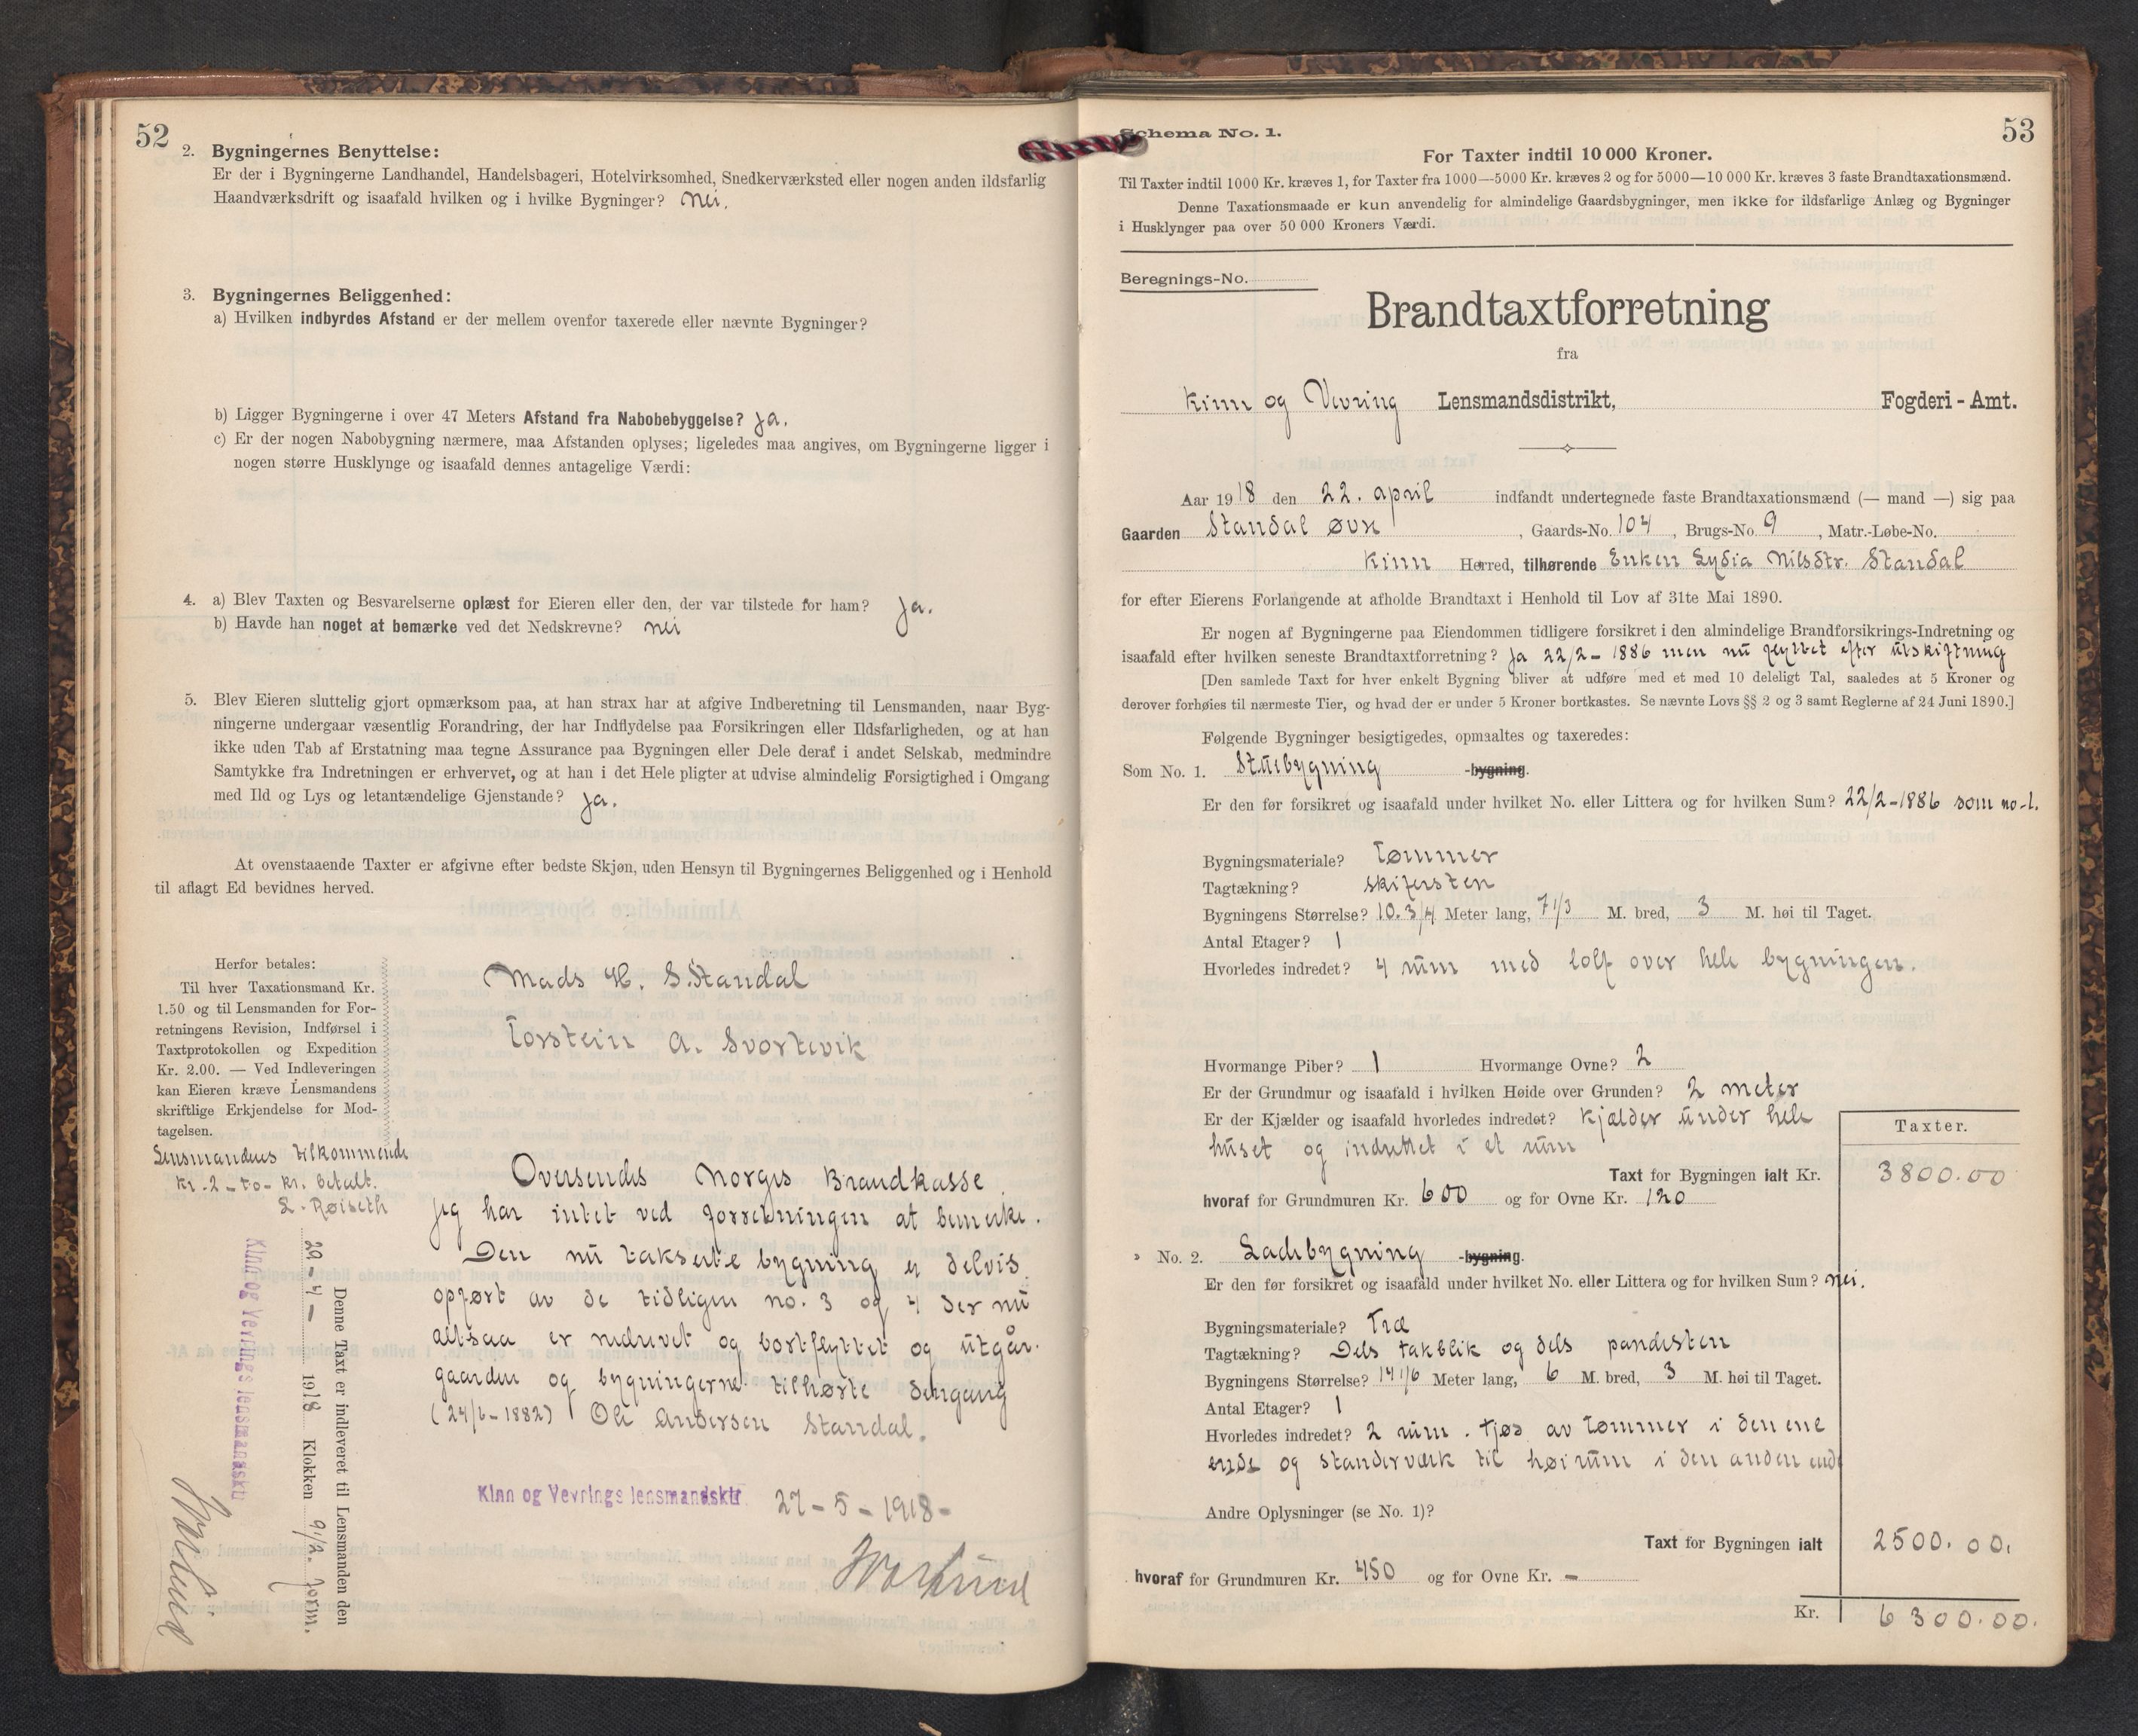 52
2. Bygningernes Benyttelse:
Er der i Bygningerne Landhandel, Handelsbageri, Hotelvirksomhed, Snedkerværksted eller nogen anden ildsfarlig
Haandværksdrift og isaafald hvilken og i hvilke Bygninger? Nei.
3. Bygningernes Beliggenhed:
a) Hvilken indbyrdes Afstand er der mellem ovenfor taxerede eller nævnte Bygninger?
b) Ligger Bygningerne i over 47 Meters Afstand fra Nabobebyggelse? Ja.
c) Er der nogen Nabobygning nærmere, maa Afstanden oplyses; ligeledes maa angives, om Bygningerne ligger i
nogen større Husklynge og isaafald dennes antagelige Værdi:
4. a) Blev Taxten og Besvarelserne oplæst for Eieren eller den, der var tilstede for ham? Ja.
b) Havde han noget at bemærke ved det Nedskrevne? nei
5. Blev Eieren sluttelig gjort opmærksom paa, at han strax har at afgive Indberetning til Lensmanden, naar Byg-
ningerne undergaar væsentlig Forandring, der har Indflydelse paa Forsikringen eller Ildsfarligheden, og at han
ikke uden Tab af Erstatning maa tegne Assurance paa Bygningen eller Dele deraf i andet Selskab, medmindre
Samtykke fra Indretningen er erhvervet, og at han i det Hele pligter at udvise almindelig Forsigtighed i Omgang
med Ild og Lys og letantændelige Gjenstande? Ja.
At ovenstaaende Taxter er afgivne efter bedste Skjøn, uden Hensyn til Bygningernes Beliggenhed og i Henhold
til aflagt Ed bevidnes herved.
Herfor betales:
Til hver Taxationsmand Kr.
1.50 og til Lensmanden for For-
retningens Revision, Indførsel i
Taxtprotokollen og Expedition
Kr. 2.00. — Ved Indleveringen
kan Eieren kræve Lensmandens
skriftlige Erkjendelse for Mod-
tagelsen.
Lensmandens tilkommende
Kr. 2 - to - kr. betalt.
L. Røiseth
Mads H. S. Standal
Torstein A. Svortevik
Oversendes Norges Brandkasse
Jeg har intet ved forretningen at bemerke.
Den nu takserte bygning er delvis
opført av de tidligere no. 3 og 4 der nu
altsaa er nedrevet og bortflyttet og utgår.
gaarden og bygningerne tilhørte dengang
(24/6-1882) Ole Andersen Standal.
Kinn og Vevrings lensmandsktr 27-5-1918-
Denne Taxt er indleveret til Lensmanden den
29-4- 1918 Klokken 9 1/2. form.
Kinn og Vevrings lensmandsktr
53
Schema No. 1.
For Taxter indtil 10 000 Kroner.
Til Taxter indtil 1000 Kr. kræves 1, for Taxter fra 1000—5000 Kr. kræves 2 og for 5000—10 000 Kr. kræves 3 faste Brandtaxationsmænd.
Denne Taxationsmaade er kun anvendelig for almindelige Gaardsbygninger, men ikke for ildsfarlige Anlæg og Bygninger
i Husklynger paa over 50 000 Kroners Værdi.
Beregnings-No.
Brandtaxtforretning
fra
Kinn og Vevring Lensmandsdistrikt, Fogderi - Amt.
Aar 1918 den 22. april indfandt undertegnede faste Brandtaxationsmænd (— mand —) sig paa
Gaarden Standal øvre, Gaards-No. 104, Brugs-No. 9, Matr.-Løbe-No.
Kinn Herred, tilhørende Enken Lydia Nilsdtr. Standal
for efter Eierens Forlangende at afholde Brandtaxt i Henhold til Lov af 31te Mai 1890.
Er nogen af Bygningerne paa Eiendommen tidligere forsikret i den almindelige Brandforsikrings-Indretning og
isaafald efter hvilken seneste Brandtaxtforretning? Ja 22/2-1886 men nu flyttet efter utskiftning
[Den samlede Taxt for hver enkelt Bygning bliver at udføre med et med 10 deleligt Tal, saaledes at 5 Kroner og
derover forhøies til nærmeste Tier, og hvad der er under 5 Kroner bortkastes. Se nævnte Lovs §§ 2 og 3 samt Reglerne af 24 Juni 1890.]
Følgende Bygninger besigtigedes, opmaaltes og taxeredes:
Som No. 1. Stuebygning -bygning.
Er den før forsikret og isaafald under hvilket No. eller Littera og for hvilken Sum? 22/2-1886 som no-1.
Bygningsmateriale? Tømmer
Tagtækning? skifersten
Bygningens Størrelse? 10.3/4 Meter lang, 7 1/3 M. bred, 3 M. høi til Taget.
Antal Etager? 1
Hvorledes indredet? 4 rum med loft over hele bygningen.
Hvormange Piber? 1 Hvormange Ovne? 2
Er der Grundmur og isaafald i hvilken Høide over Grunden? 2 meter
Er der Kjælder og isaafald hvorledes indredet? Kjælder under hele
huset og indrettet i et rum
Taxter.
Taxt for Bygningen ialt Kr. 3800.00
hvoraf for Grundmuren Kr. 600 og for Ovne Kr. 120
» No. 2. Ladebygning -bygning.
Er den før forsikret og isaafald under hvilket No. eller Littera og for hvilken Sum? nei.
Bygningsmateriale? Træ
Tagtækning? Dels takblik og dels pandesten
Bygningens Størrelse? 14 1/6 Meter lang, 6 M. bred, 3 M. høi til Taget.
Antal Etager? 1
Hvorledes indredet? 2 rum. Fjøs av tømmer i den ene
ende og standerværk til høirum i den anden ende
Andre Oplysninger (se No. 1)?
Taxt for Bygningen ialt 2500.00.
hvoraf for Grundmuren Kr. 450 og for Ovne Kr. -
Kr. 6300.00.